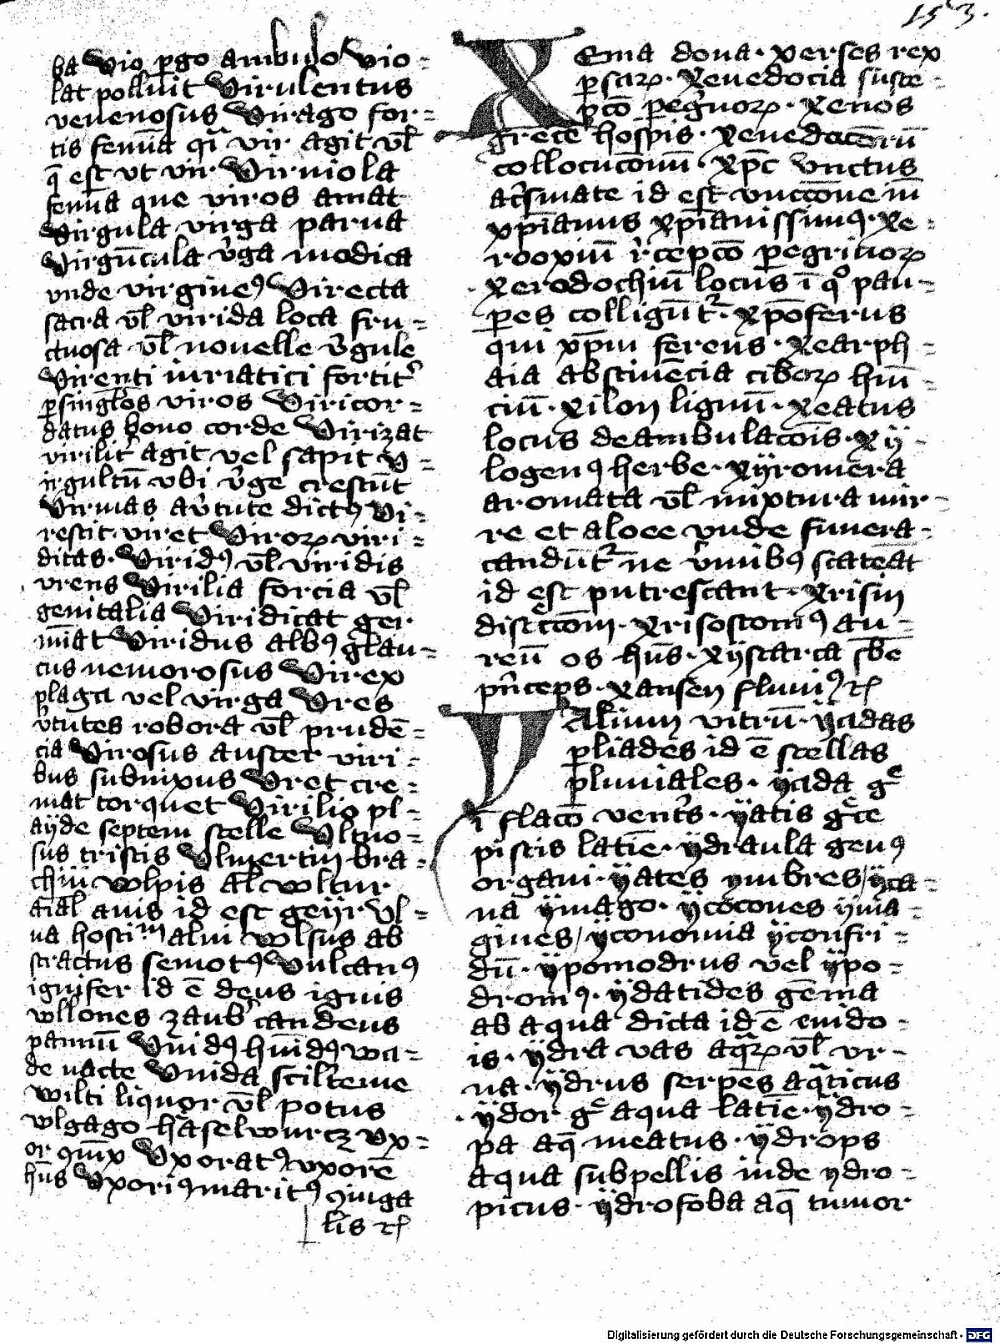 153.
ba Vio pergo ambulo vio-
lat polluit Virulentus
venenosus Virago for-
tis femina que vir agit vel
que est ut vir Virniola
femina que viros amat
Virgula virga parva
Virguncula virga modica
unde virgineus Directa
sacra vel virida loca fru-
ctuosa vel novelle virgule
Virenti
viros Viricor-
datus bono corde Virizat
virilit agit vel sapit V-
irgultum ubi virge crescunt
Virmas a virtute dictus Vi-
rescit viret Viror viri-
ditas. Viridus vel viridis
vrens Virilia forcia vel
genitalia Viridicat ger
minat Viridus albus glau-
cus nemorosus Virex
plaga vel virga Vires
virtutes robora vel pruden-
cia Virosus auster viri-
bus subnixus Vret cre-
mat torquet Virilio pl-
ayde septem stelle Vltuo-
sus tristis Vlmertin bra-
chiu wlpis al wltur
aial avis id est geyr Vl-
na alni wlsus ab
stractus semotus Vulcanus
ignifer id e deus ignis
wllones candens
pannu Vuidus huidus wa-
de nacte Vnida
liquor vel potus
wlgago haselwurcz vx-
or Vxoratus uxore
hns Vxorius maritus
lis rc
Xema dova. xerses rex
persar. Xenedocia susce-
pco pegrinor. Xenos
grece hospis. Xenedoceru
collocucom Xpc vnctus
acrismate id est vnccione in
xpianus xpianissimus. Xe-
receptco pegrinor
Xerodochiu locus i quo pau-
peres colligunt. Xpoferus
qui xpm ferens. Xearph-
aia abstinencia cibor hin-
ciu. Xilon lignu. Xeatus
locus deambulacois. Xy-
logenus herbe. Xyromera
aromata vel mixtura mir-
re et aloee unde funera-
candunt ne vmibus scateat
id est putrescant. Xrisin
disticom. Xrisostomus au-
reu os hns. Xystarca
princeps. Xansen fluvius rc
Yalium vitru. yadas
pliades id e stellas
pluviales. yada gce
i flaco veners. yatis gce
piscis latie. ydraula genus
organi. yates ymbres/ yca-
na ymago. ycocones yma-
gines/ yconomia yconfri-
du. ypomodrus vel ypo-
dromus. ydatides gemma
ab aqua dicta id e
is. ydra vas aqr vel vr-
na. ydrus serpes aqticus
ydor gce aqua latie. ydro-
pa aqe meatus. ydrops
aqua subpellis inde ydro-
picus. ydrofoba aqe tumor
Digitalisierung gefördert durch die Deutsche Forschungsgemeinschaft - DFG